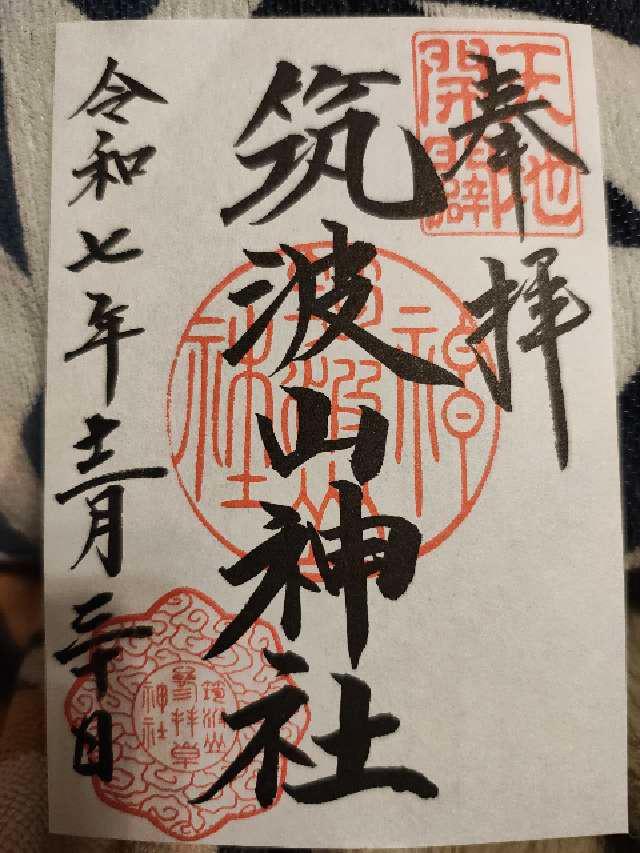 天地
開闢
奉拝
筑波山神社
令和七年十二月三十日
筑波山
参拝章
神社